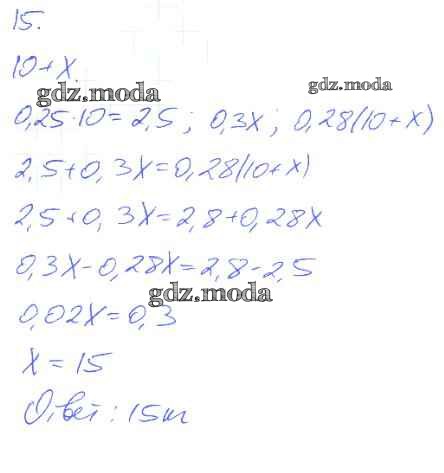 15.
10+x.
gdz.moda
gdz.moda
0,25·10=2,5; 0,3x; 0,28(10+x)
2,5+0,3x=0,28(10+x)
2,5+0,3x=2,8+0,28x
0,3x-0,28x=2,8-2,5
gdz.moda
0,02x=0,3
x=15
Ответ: 15т